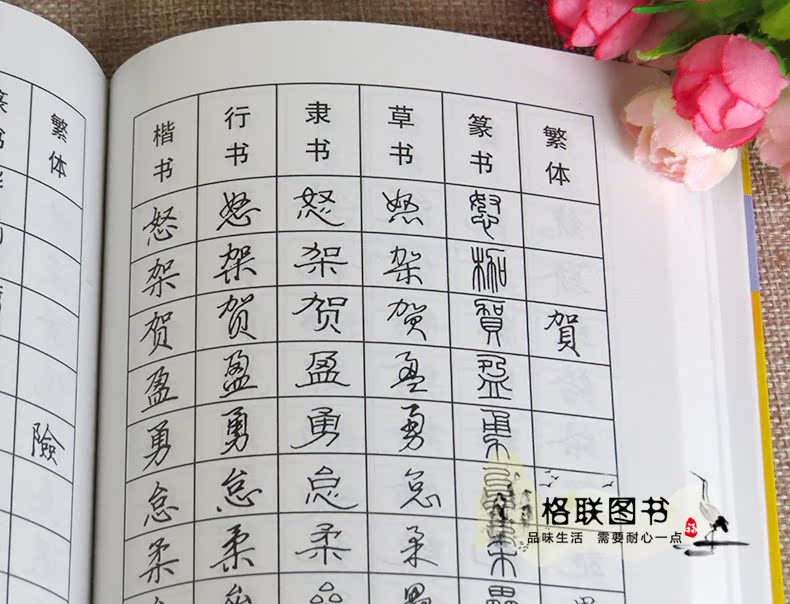 篆书 繁体
險
楷书 行书 隶书 草书 篆书 繁体
怒 怒 怒 怒 怒
架 架 架 架 架
贺 贺 贺 贺 賀 賀
盈 盈 盈 盈 盈
勇 勇 勇 勇 勇
怠 怠 怠 怠
柔 柔 柔 柔
格联图书
品味生活 需要耐心一点